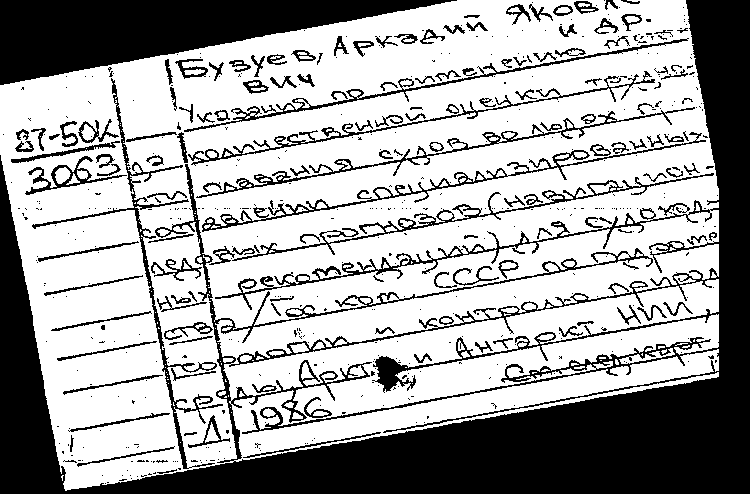 Бузуев, Аркадий Яковле
вич и др.
Указания по применению мето-
87-50К
3063
да количественной оценки трудно-
сти плавания судов во льдах при
составлении специализированных
ледовых прогнозов (навигацион-
ных рекомендаций) для судоход-
ства / Гос. ком. СССР по гидроме
теорологии и контролю природ
среды, Аркт. и Антаркт. НИИ,
- Л., 1986
См. след. карт